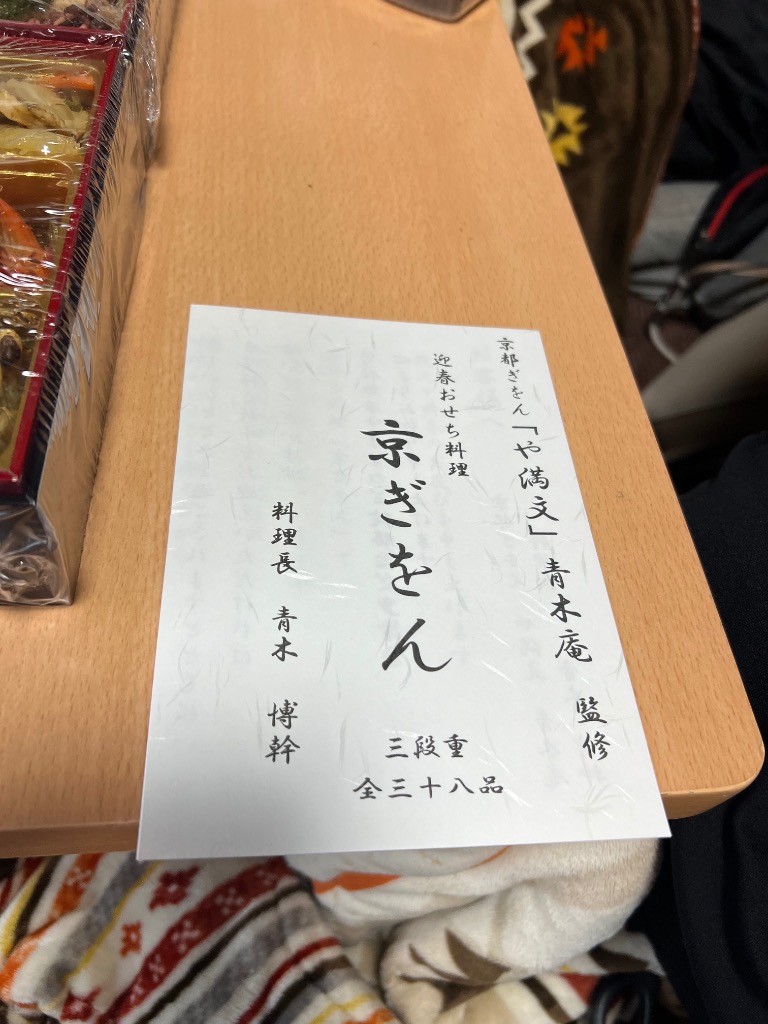 京都ぎをん「や満文」青木庵 監修
迎春おせち料理
京ぎをん
三段重
全三十八品
料理長 青木 博幹